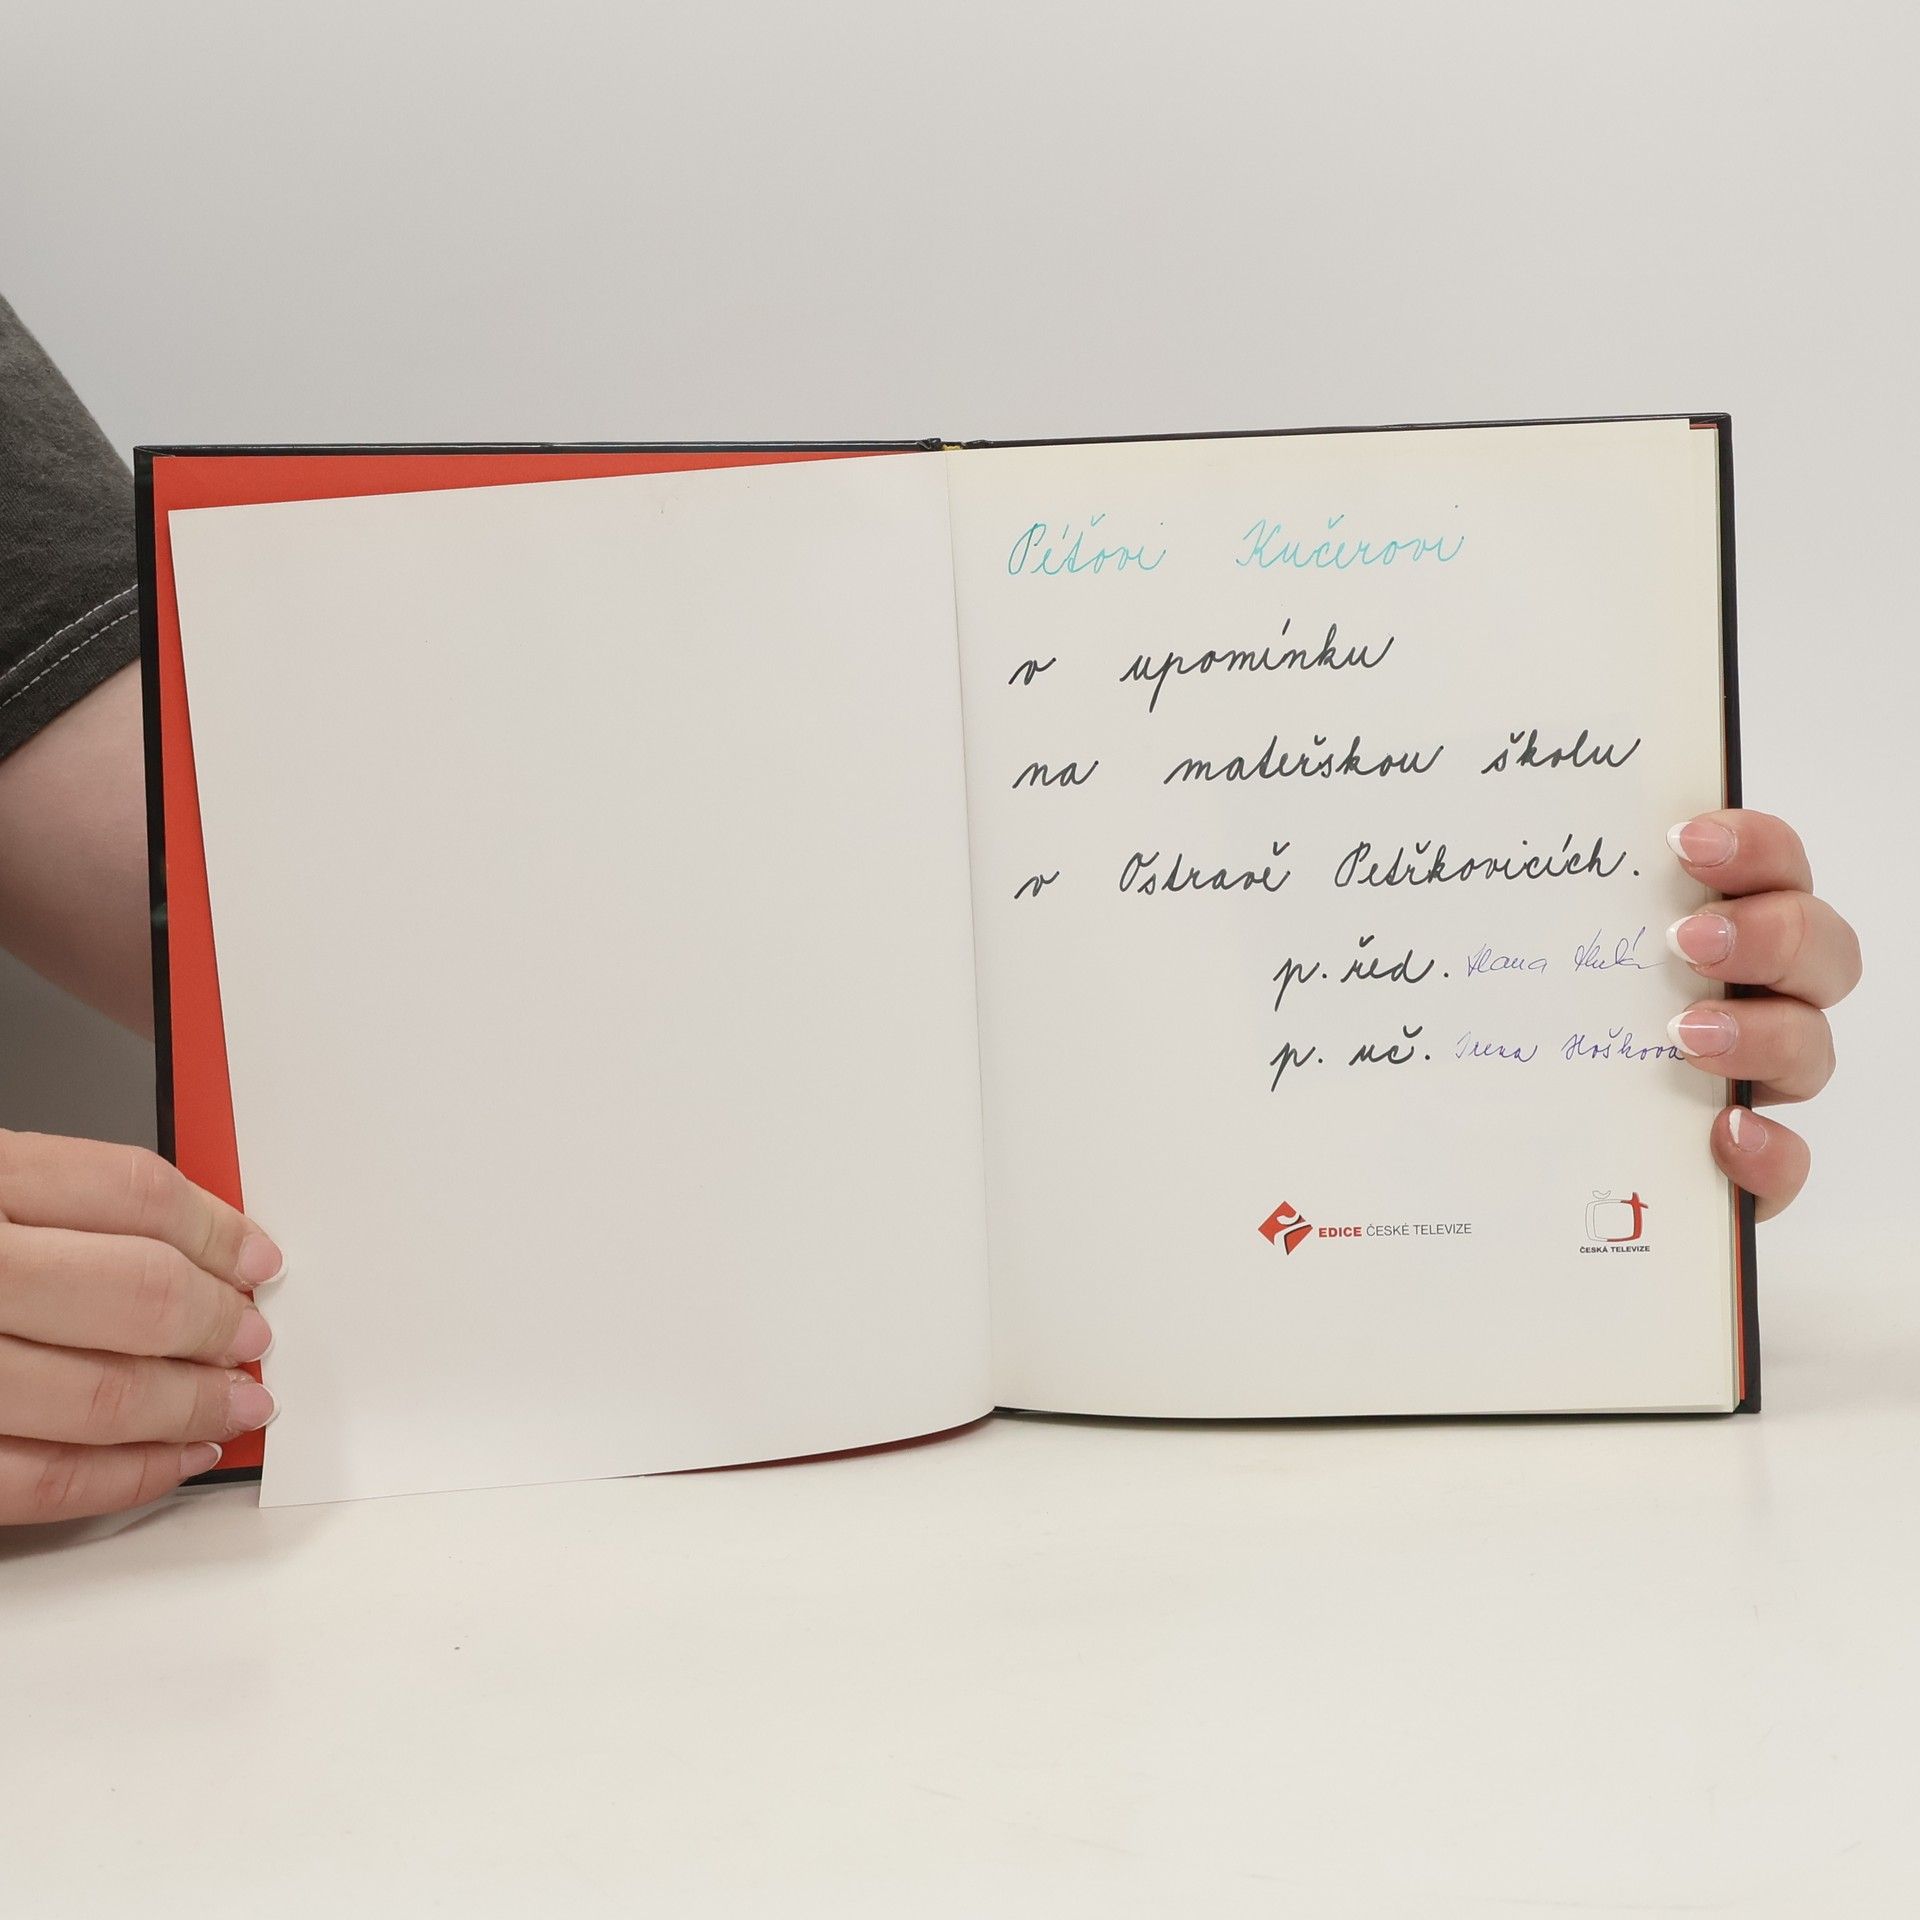 Péťovi Kučerovi
v upomínku
na mateřskou školu
v Ostravě Petřkovicích.
p. řed. Hana
p. uč. Irena Hošková
EDICE ČESKÉ TELEVIZE
ČESKÁ TELEVIZE